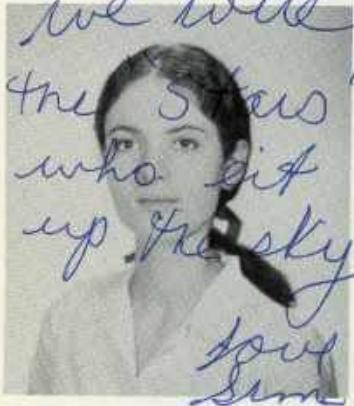 we were
the "Stars"
who lit
up the sky
Love